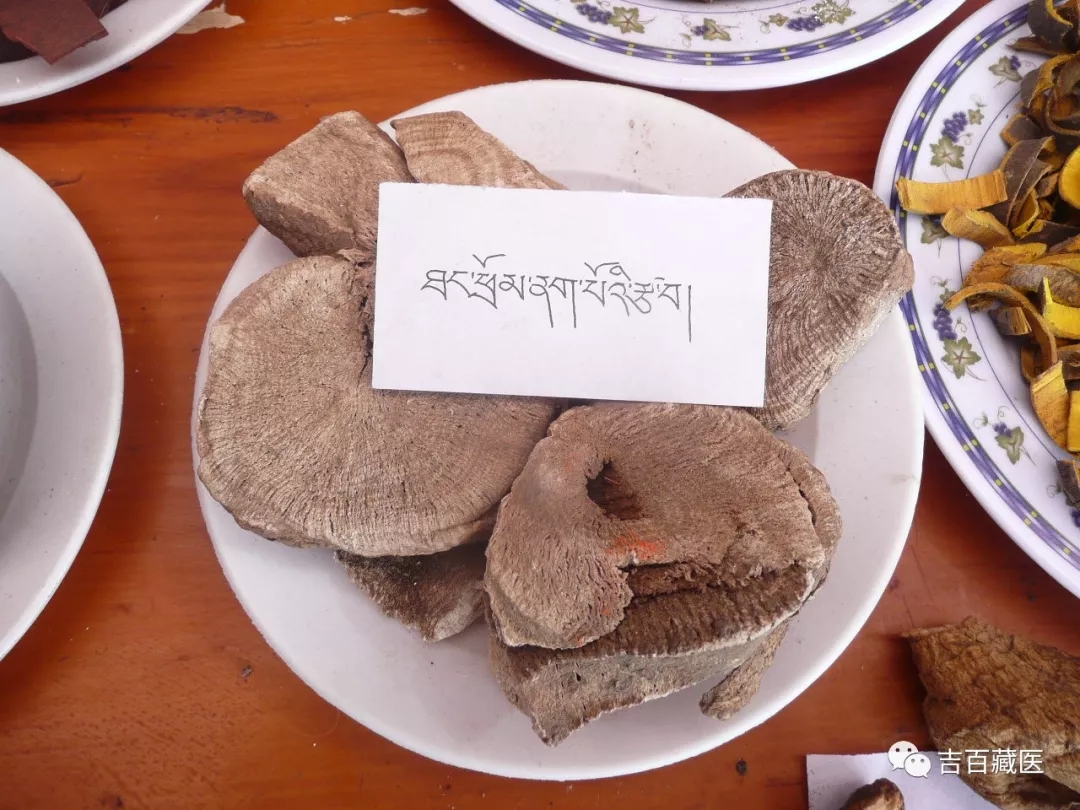 ཐང་ཕྲོམ་ནག་པོའི་རྩ་བ།
吉百藏医